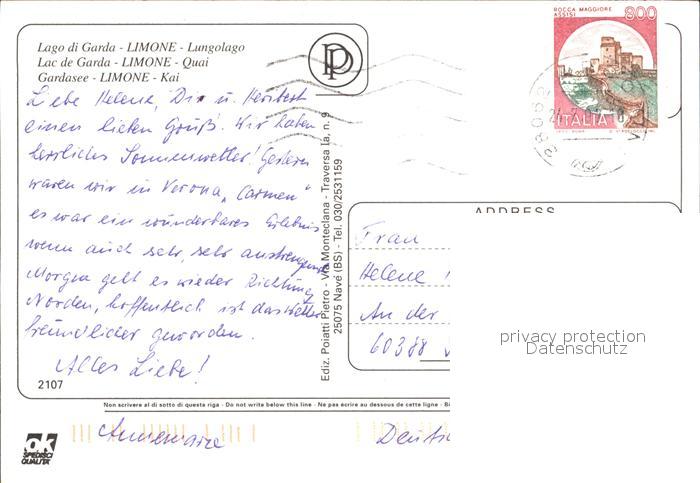 Lago di Garda - LIMONE - Lungolago
Lac de Garda - LIMONE - Quai
Gardasee - LIMONE - Kai
Liebe Helene, Dir u. Heribert
einen lieben Gruß. Wir haben
herrliches Sonnenwetter! Gestern
waren wir in Verona „Carmen"
es war ein wunderbares Erlebnis
wenn auch sehr, sehr anstrengend
Morgen geht es wieder Richtung
Norden, hoffentlich ist das Wetter
freundlicher geworden.
Alles Liebe!
Annemarie
2107
OK
SPEDIRCI
QUALITÀ
PP
Ediz. Poiatti Pietro - Via Monteclana - Traversa Ia, n. 9
25075 Navé (BS) - Tel. 030/2531159
ROCCA MAGGIORE
ASSISI
800
ITALIA
ADDRESS
Frau
Helene
An der
60388
Deutsc
privacy protection
Datenschutz
Non scrivere al di sotto di questa riga - Do not write below this line - Ne pas écrire au dessous de cette ligne - Bi